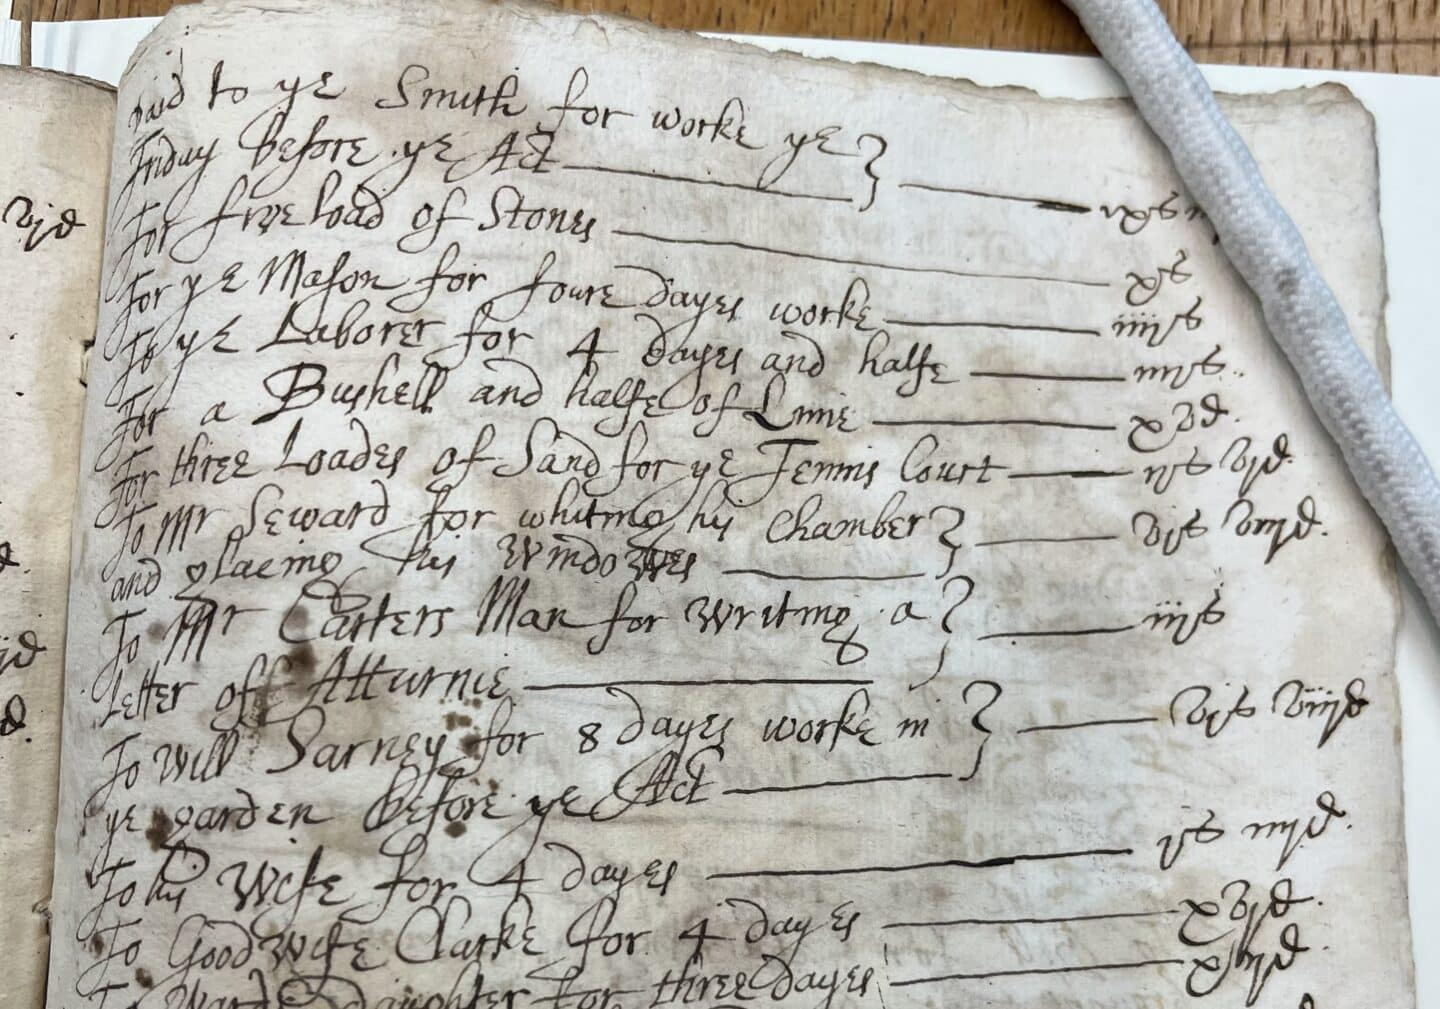 vjd
paid to ye Smith for worke ye
Friday before ye Act ixs
For five load of Stones xs
For ye Mason for foure dayes worke iiijs
To ye Laborer for 4 dayes and halfe iiijs
For a Bushell and halfe of Lime xvd.
For three Loades of Sand for ye Tennis Court ijs vjd.
To Mr Seward for whiting his Chamber vjs viijd.
and glaeing his Windowes
To Mr Carters Man for writing a iijs
Letter off Atturnie
To Will Sarney for 8 dayes worke in vjs viijd
ye garden before ye Act
To his Wife for 4 dayes js iiijd.
To Goodwife Clarke for 4 dayes xvjd.
To Wards daughter for three dayes